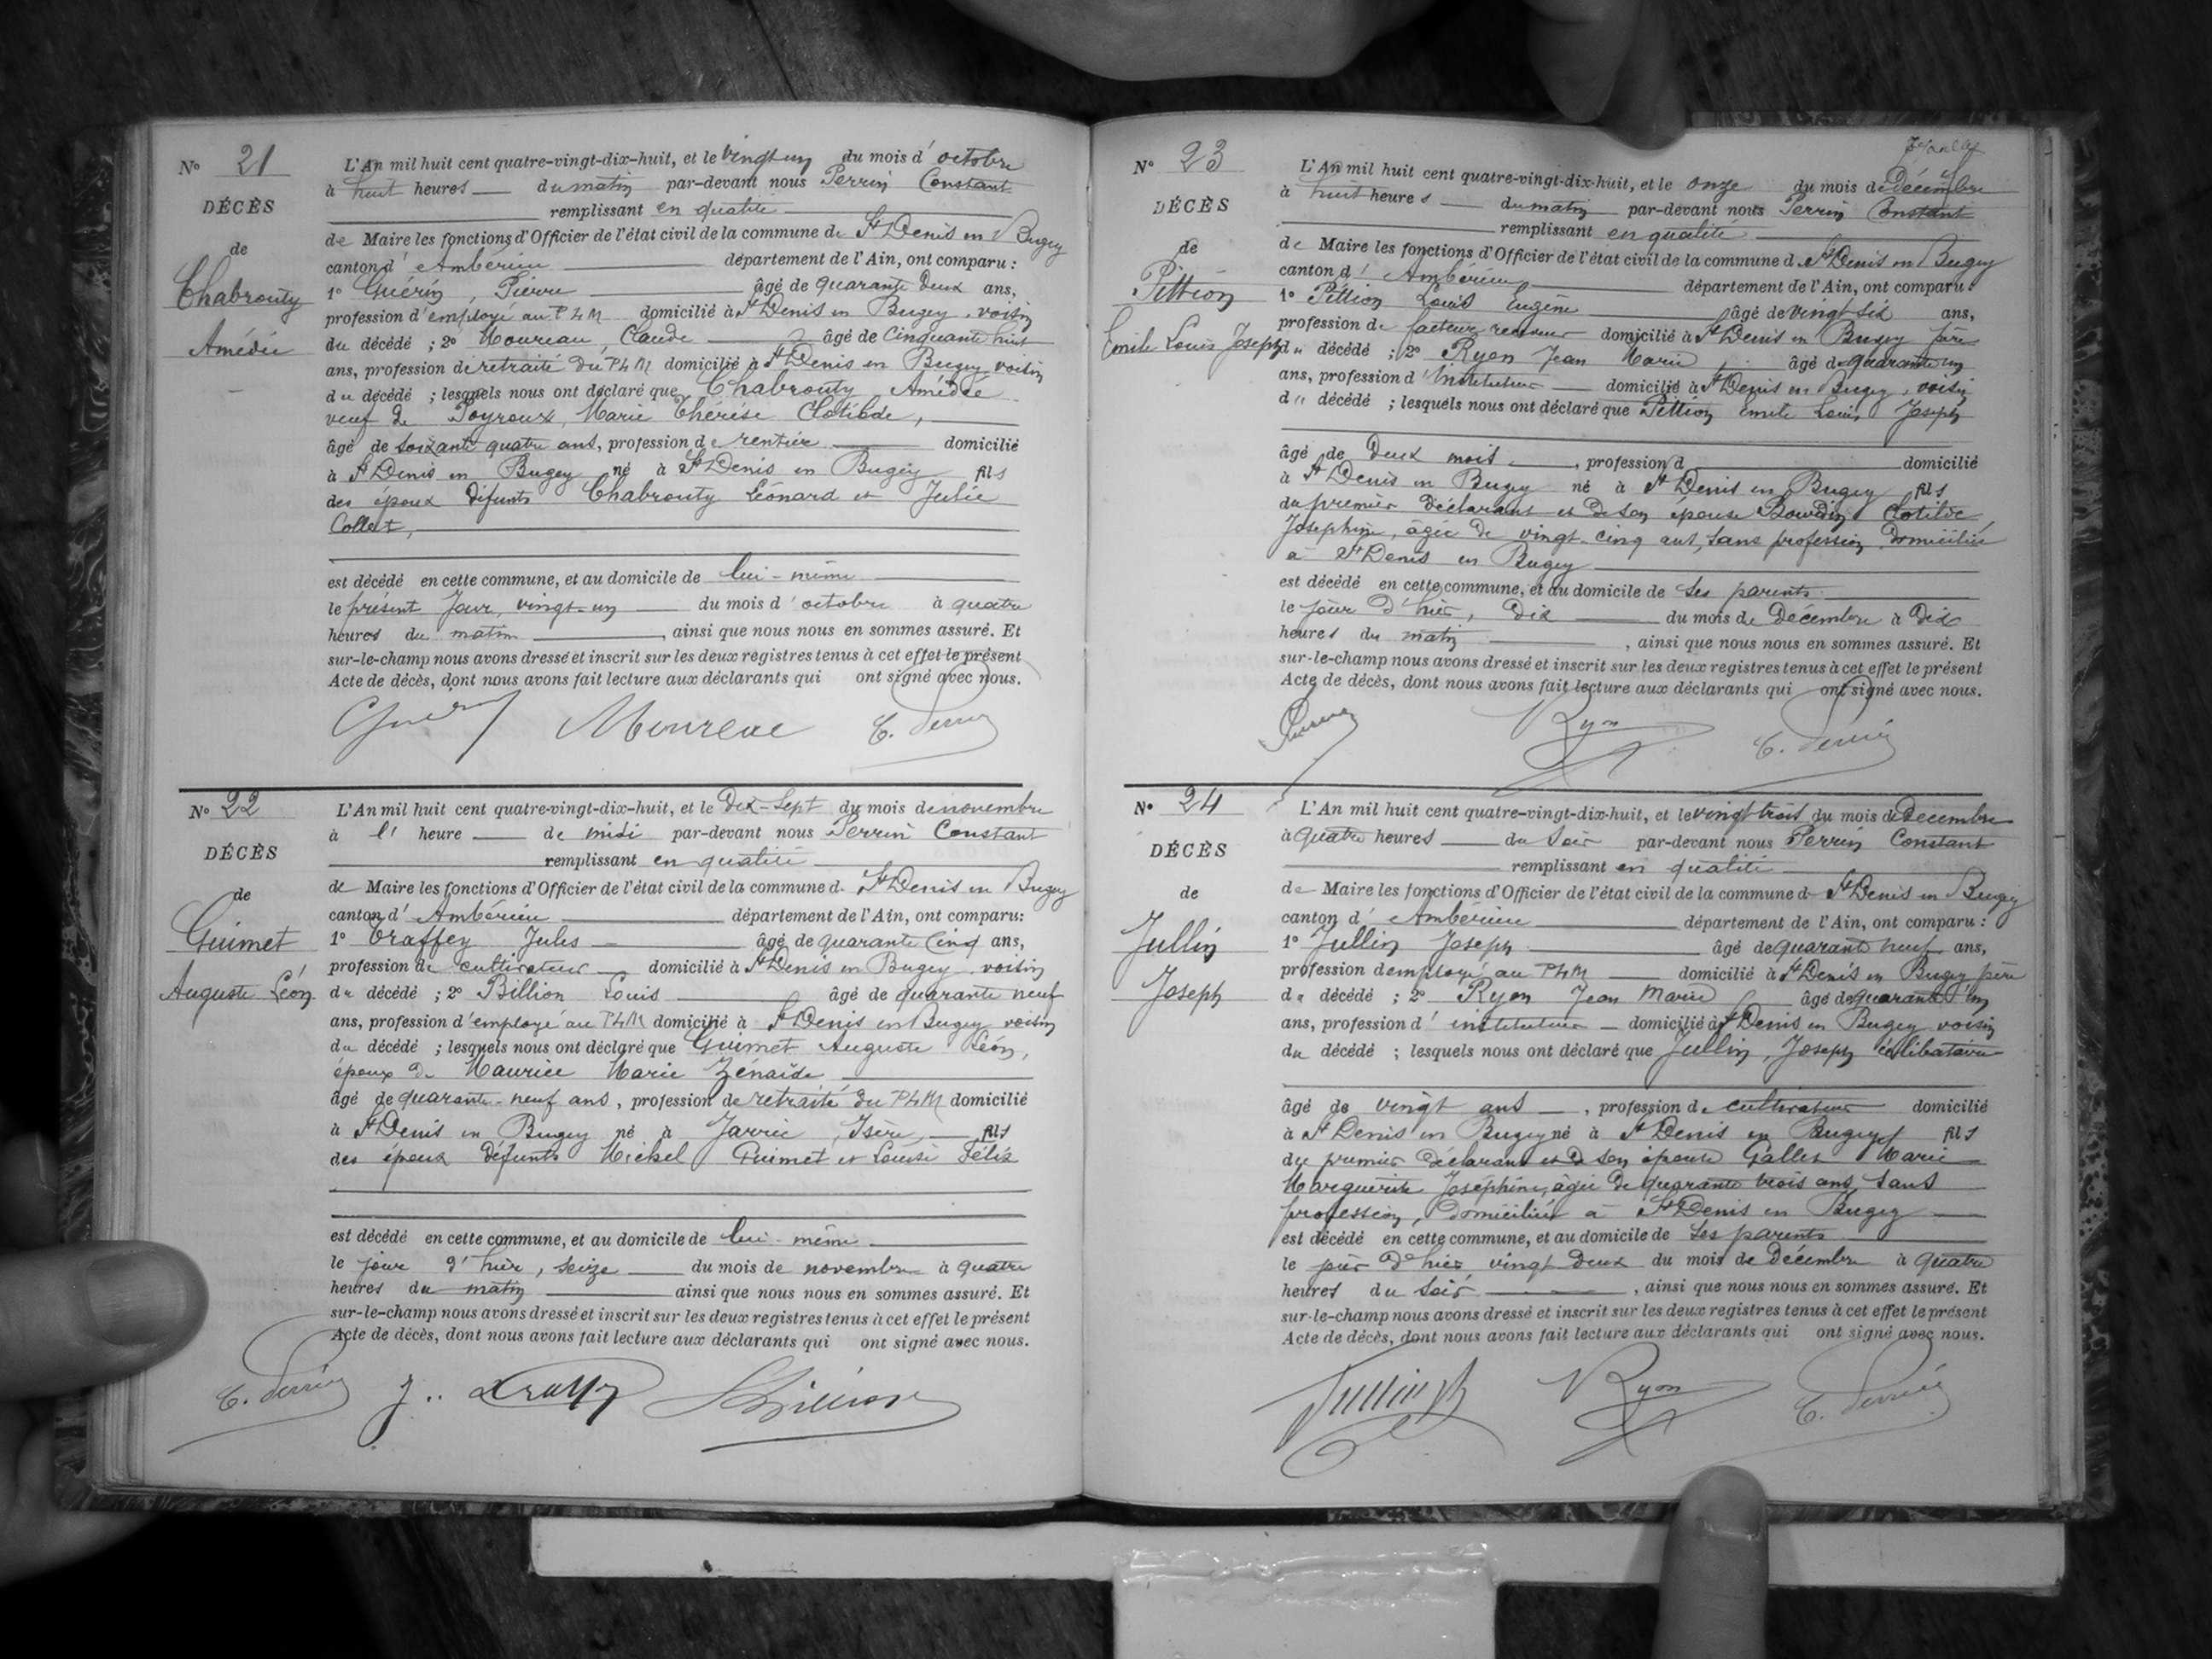 N° 21
DÉCÈS
de
Chabrouty
Amédée
L'An mil huit cent quatre-vingt-dix-huit, et le vingt un du mois d'octobre
à huit heures du matin par-devant nous Perrin Constant
remplissant en qualité
de Maire les fonctions d'Officier de l'état civil de la commune de St Denis en Bugey
canton d'Ambérieu département de l'Ain, ont comparu :
1° Guérin, Pierre âgé de quarante deux ans,
profession d'employé au PLM domicilié à St Denis en Bugey, voisin
du décédé ; 2° Moureau, Claude âgé de Cinquante huit
ans, profession de retraité du PLM domicilié à St Denis en Bugey voisin
du décédé ; lesquels nous ont déclaré que Chabrouty Amédée
veuf de Poyroux, Marie Thérèse Clotilde,
âgé de soixante quatre ans, profession de rentier domicilié
à St Denis en Bugey né à St Denis en Bugey fils
des époux défunts Chabrouty Léonard et Julie
Collet,
est décédé en cette commune, et au domicile de lui-même
le présent jour, vingt-un du mois d'octobre à quatre
heures du matin, ainsi que nous nous en sommes assuré. Et
sur-le-champ nous avons dressé et inscrit sur les deux registres tenus à cet effet le présent
Acte de décès, dont nous avons fait lecture aux déclarants qui ont signé avec nous.
Guérin Moureau C. Perrin
N° 22
DÉCÈS
de
Guimet
Auguste Léon
L'An mil huit cent quatre-vingt-dix-huit, et le Dix-Sept du mois de novembre
à l' heure de midi par-devant nous Perrin Constant
remplissant en qualité
de Maire les fonctions d'Officier de l'état civil de la commune d. St Denis en Bugey
canton d'Ambérieu département de l'Ain, ont comparu :
1° Traffey Jules âgé de quarante Cinq ans,
profession de cultivateur domicilié à St Denis en Bugey voisin
du décédé ; 2° Billion Louis âgé de quarante neuf
ans, profession d'employé au PLM domicilié à St Denis en Bugey voisin
du décédé ; lesquels nous ont déclaré que Guimet Auguste Léon,
époux de Maurice Marie Zenaïde
âgé de quarante-neuf ans, profession de retraité du PLM domicilié
à St Denis en Bugey né à Jarrie, Isère, fils
des époux défunts Michel Guimet et Louise Félix
est décédé en cette commune, et au domicile de lui-même
le jour d'hier, seize du mois de novembre à quatre
heures du matin ainsi que nous nous en sommes assuré. Et
sur-le-champ nous avons dressé et inscrit sur les deux registres tenus à cet effet le présent
Acte de décès, dont nous avons fait lecture aux déclarants qui ont signé avec nous.
C. Perrin J. Traffey Billion
N° 23
DÉCÈS
de
Pittion
Emile Louis Joseph
L'An mil huit cent quatre-vingt-dix-huit, et le onze du mois de Décembre
à huit heures du matin par-devant nous Perrin Constant
remplissant en qualité
de Maire les fonctions d'Officier de l'état civil de la commune d. St Denis en Bugey
canton d'Ambérieu, département de l'Ain, ont comparu :
1° Pittion Louis Eugène âgé de vingt-six ans,
profession de facteur receveur domicilié à St Denis en Bugey père
du décédé ; 2° Ryon Jean Marie, âgé de quarante un
ans, profession d'instituteur domicilié à St Denis en Bugey, voisin
du décédé ; lesquels nous ont déclaré que Pittion Emile Louis Joseph
âgé de Deux mois, profession d domicilié
à St Denis en Bugey né à St Denis en Bugey fils
du premier déclarant et de son épouse Bourdin Clotilde
Josephine, âgée de vingt-cinq ans, sans profession, domiciliée
à St Denis en Bugey
est décédé en cette commune, et au domicile de ses parents
le jour d'hier, dix du mois de Décembre à Dix
heures du matin, ainsi que nous nous en sommes assuré. Et
sur-le-champ nous avons dressé et inscrit sur les deux registres tenus à cet effet le présent
Acte de décès, dont nous avons fait lecture aux déclarants qui ont signé avec nous.
Ryon C. Perrin
N° 24
DÉCÈS
de
Jullin
Joseph
L'An mil huit cent quatre-vingt-dix-huit, et le vingt trois du mois de Decembre
à quatre heures du soir par-devant nous Perrin Constant
remplissant en qualité
de Maire les fonctions d'Officier de l'état civil de la commune d. St Denis en Bugey
canton d'Ambérieu département de l'Ain, ont comparu :
1° Jullin Joseph âgé de quarante neuf ans,
profession d'employé au PLM domicilié à St Denis en Bugey père
du décédé ; 2° Ryon Jean Marie âgé de quarante un
ans, profession d'instituteur domicilié à St Denis en Bugey voisin
du décédé ; lesquels nous ont déclaré que Jullin, Joseph célibataire
âgé de vingt ans, profession de cultivateur domicilié
à St Denis en Bugey né à St Denis en Bugey fils
du premier déclarant et de son épouse Gallet Marie
Marguerite Joséphine, âgée de quarante trois ans sans
profession, domiciliée à St Denis en Bugey
est décédé en cette commune, et au domicile de ses parents
le jour d'hier vingt deux du mois de Décembre à quatre
heures du soir, ainsi que nous nous en sommes assuré. Et
sur-le-champ nous avons dressé et inscrit sur les deux registres tenus à cet effet le présent
Acte de décès, dont nous avons fait lecture aux déclarants qui ont signé avec nous.
Jullin Ryon C. Perrin